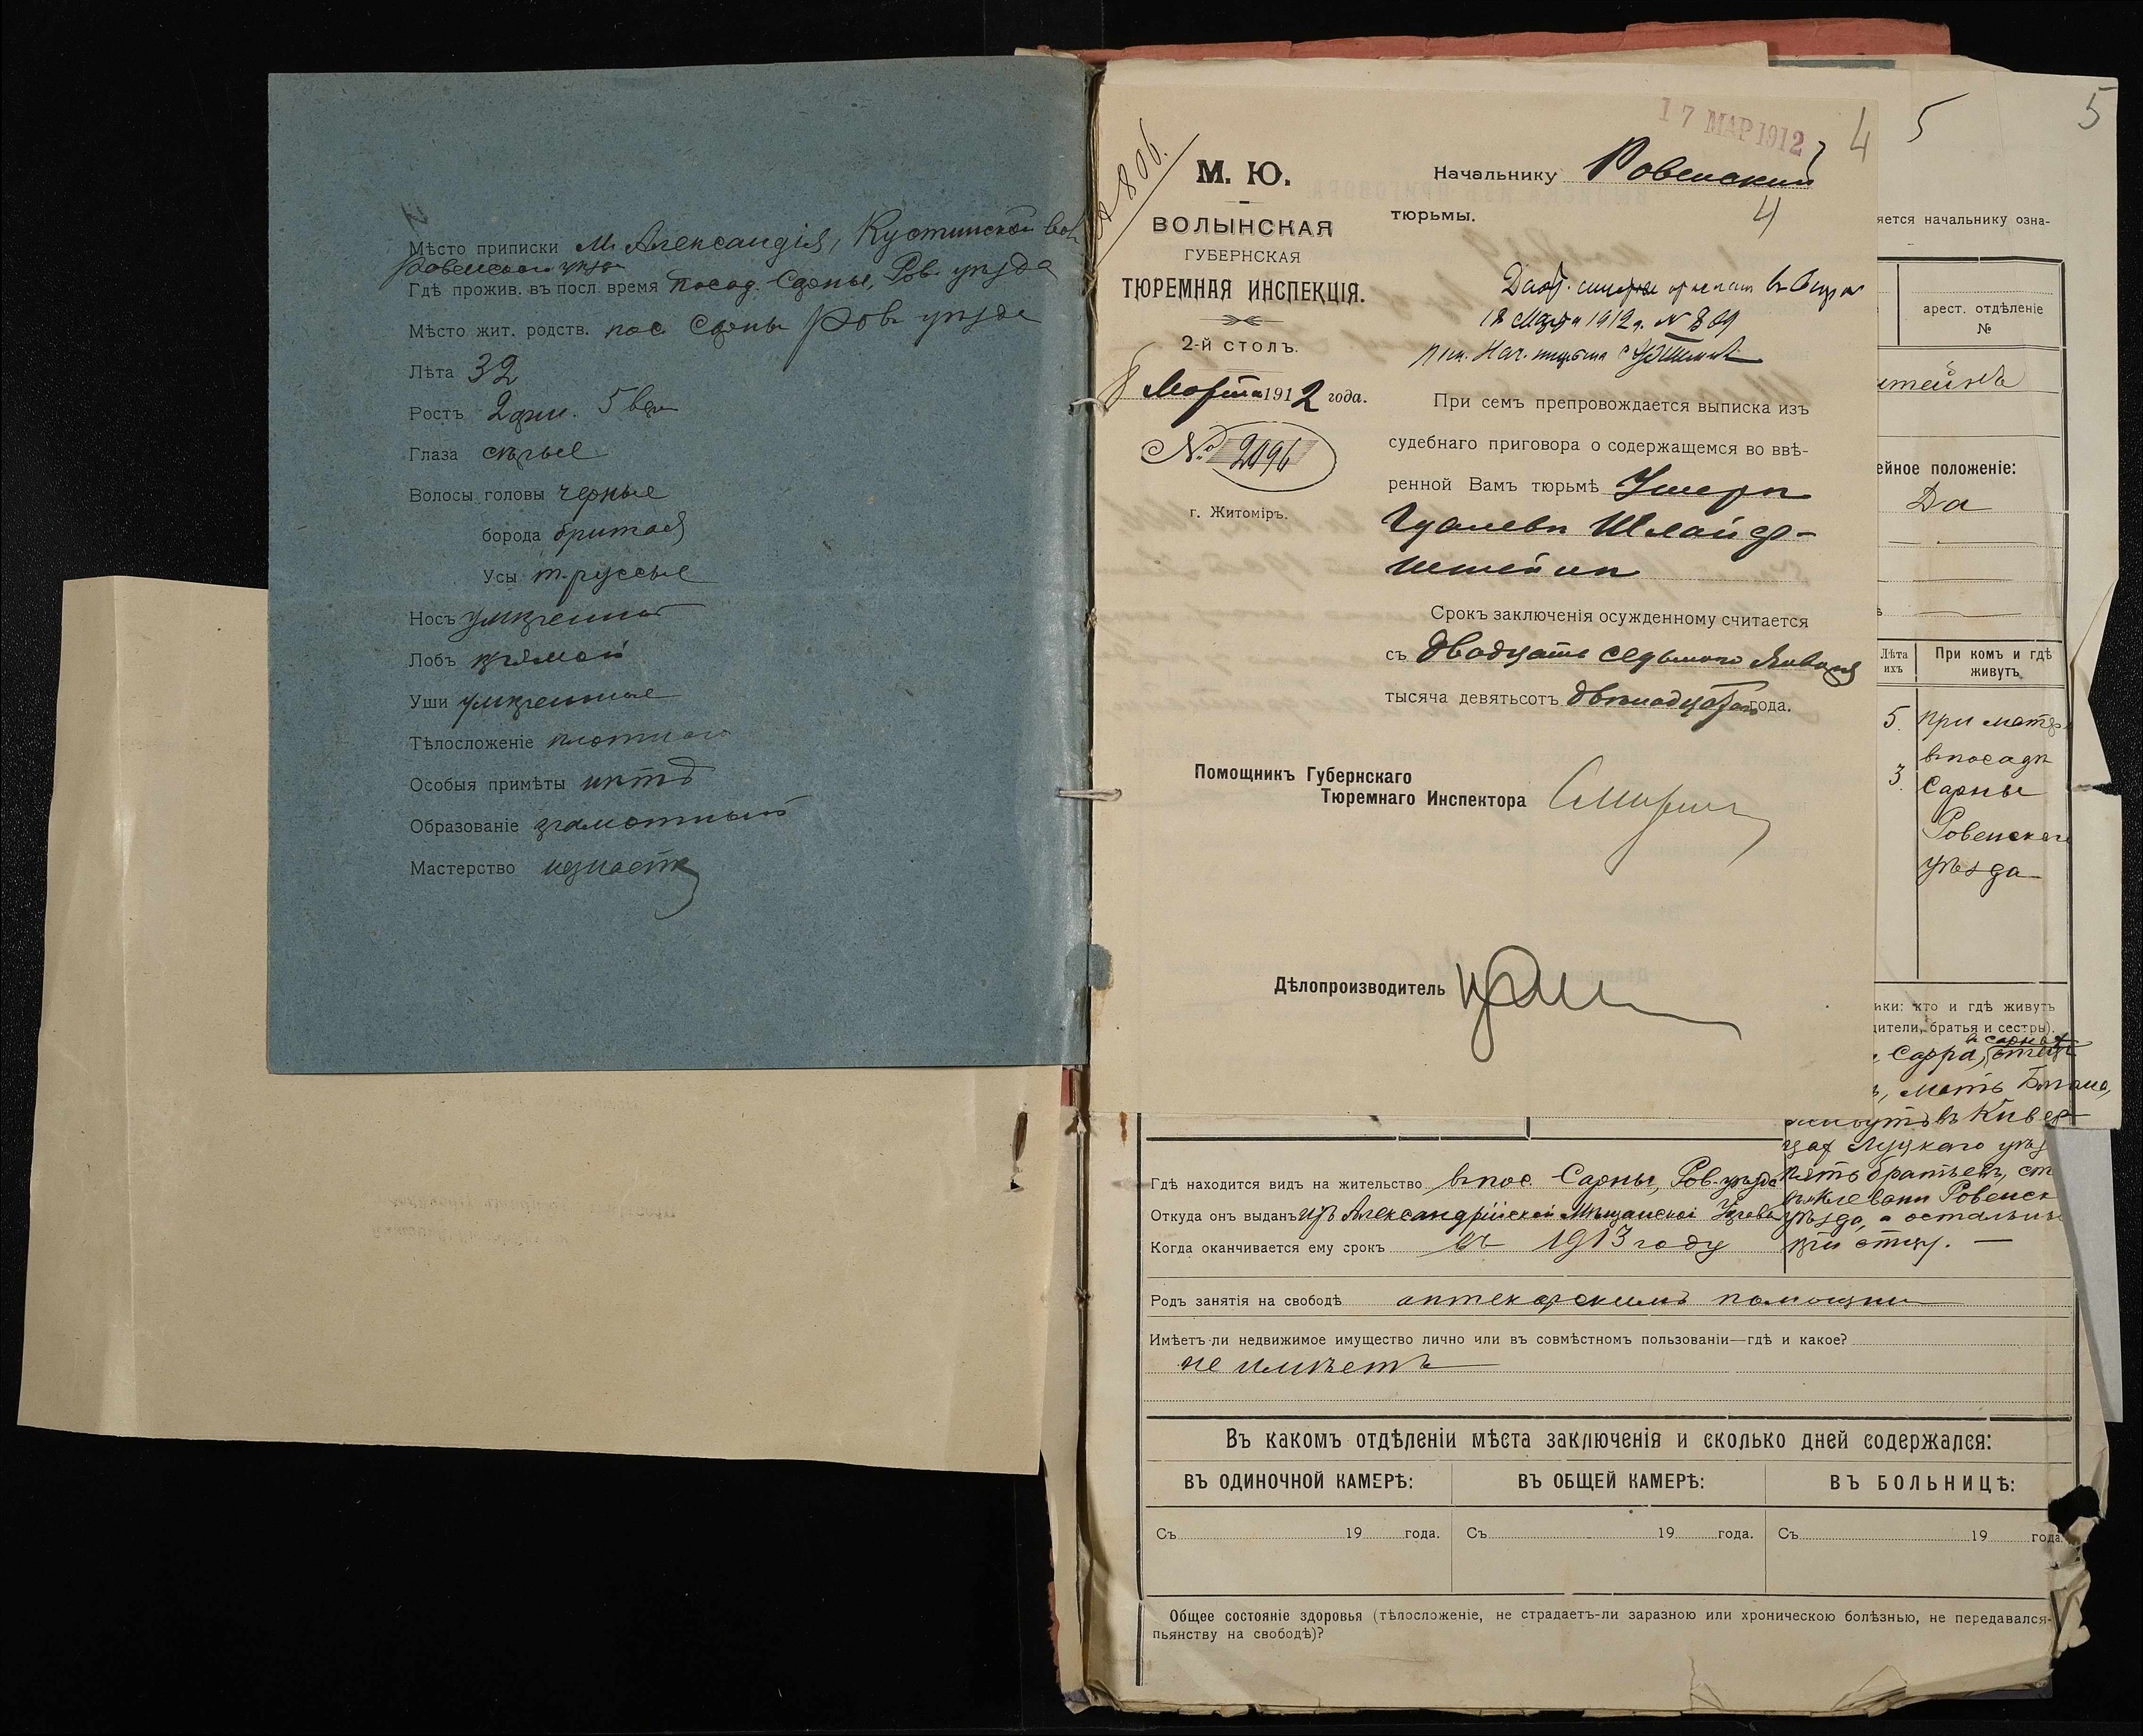 Мѣсто приписки м. Александрія, Кустинской вол.
Ровенскаго уѣзда
Гдѣ прожив. въ посл. время посад. Сарны, Ров. уѣзда
Мѣсто жит. родств. пос. Сарны Ров. уѣзда
Лѣта 32
Ростъ 2 арш. 5 вер
Глаза сѣрые
Волосы головы черные
борода бритая
Усы т.-русые
Носъ умѣренный
Лобъ прямой
Уши умѣренные
Тѣлосложеніе плотнаго
Особыя примѣты нѣтъ
Образованіе грамотный
Мастерство
17 МАР 1912
4
806.
М. Ю.
ВОЛЫНСКАЯ
ГУБЕРНСКАЯ
ТЮРЕМНАЯ ИНСПЕКЦІЯ.
2-й СТОЛЪ.
8 Марта 1912 года.
№ 2096
г. Житоміръ.
Начальнику Ровенской
тюрьмы.
4
18 Марта 1912 г. № 809
При семъ препровождается выписка изъ
судебнаго приговора о содержащемся во ввѣ-
ренной Вамъ тюрьмѣ Ушерѣ
Гдалевѣ Шлайф-
штейнѣ
Срокъ заключенія осужденному считается
съ двадцать седьмого Января
тысяча девятьсотъ двѣнадцатаго года.
Помощникъ Губернскаго
Тюремнаго Инспектора
Дѣлопроизводитель
5
5
яется начальнику озна-
арест. отдѣленіе
№
штейнъ
ейное положеніе:
Да
Лѣта
ихъ
При комъ и гдѣ
живутъ
5. при матери
въ посадѣ
3. Сарны
Ровенскаго
уѣзда
ики: кто и гдѣ живутъ
дители, братья и сестры).
въ Сарнах
Сарра, отецъ
мать
живутъ въ Кивер-
цах Луцкаго уѣз
пять братьевъ, ст
въ Клевани Ровенск
уѣзда, а остальны
при отцу. —
Гдѣ находится видъ на жительство въ пос. Сарны, Ров. уѣзда
Откуда онъ выданъ изъ Александрійской Мѣщанской Управы
Когда оканчивается ему срокъ въ 1913 году
Родъ занятія на свободѣ аптекарскимъ помощни
Имѣетъ-ли недвижимое имущество лично или въ совмѣстномъ пользованіи—гдѣ и какое?
не имѣетъ
Въ какомъ отдѣленіи мѣста заключенія и сколько дней содержался:
ВЪ ОДИНОЧНОЙ КАМЕРѢ:
ВЪ ОБЩЕЙ КАМЕРѢ:
ВЪ БОЛЬНИЦѢ:
Съ 19 года.
Съ 19 года.
Съ 19 года.
Общее состояніе здоровья (тѣлосложеніе, не страдаетъ-ли заразною или хроническою болѣзнью, не передавался-
пьянству на свободѣ)?